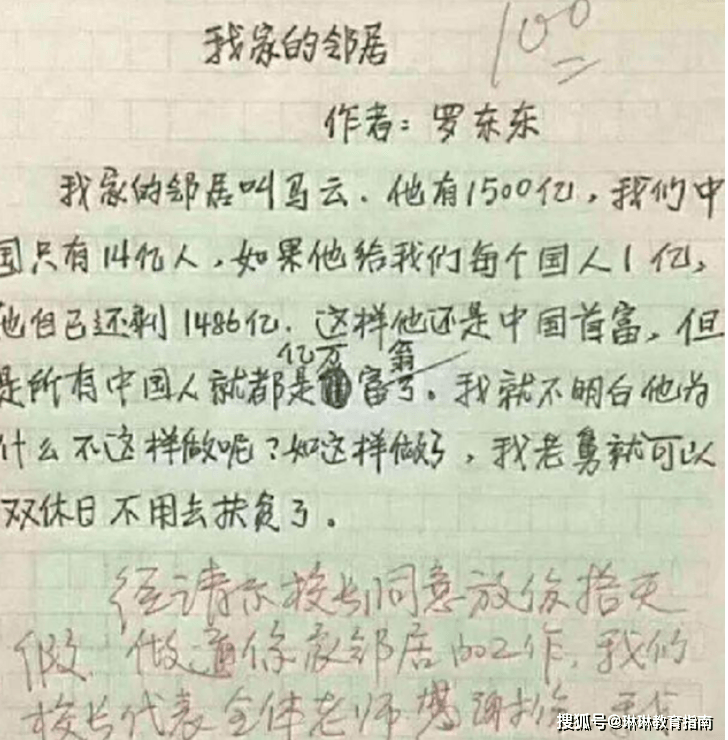 我家的邻居
100
作者：罗东东
我家的邻居叫马云．他有1500亿，我们中
国只有14亿人，如果他给我们每个国人1亿，
他自己还剩1486亿．这样他还是中国首富，但
亿万 翁
是所有中国人就都是富了。我就不明白他为
什么不这样做呢？如这样做了，我老舅就可以
双休日不用去扶贫了。
经请示校长同意放你
假．做通你家邻居的工作，我们
校长代表全体老师感谢你
搜狐号@琳琳教育指南